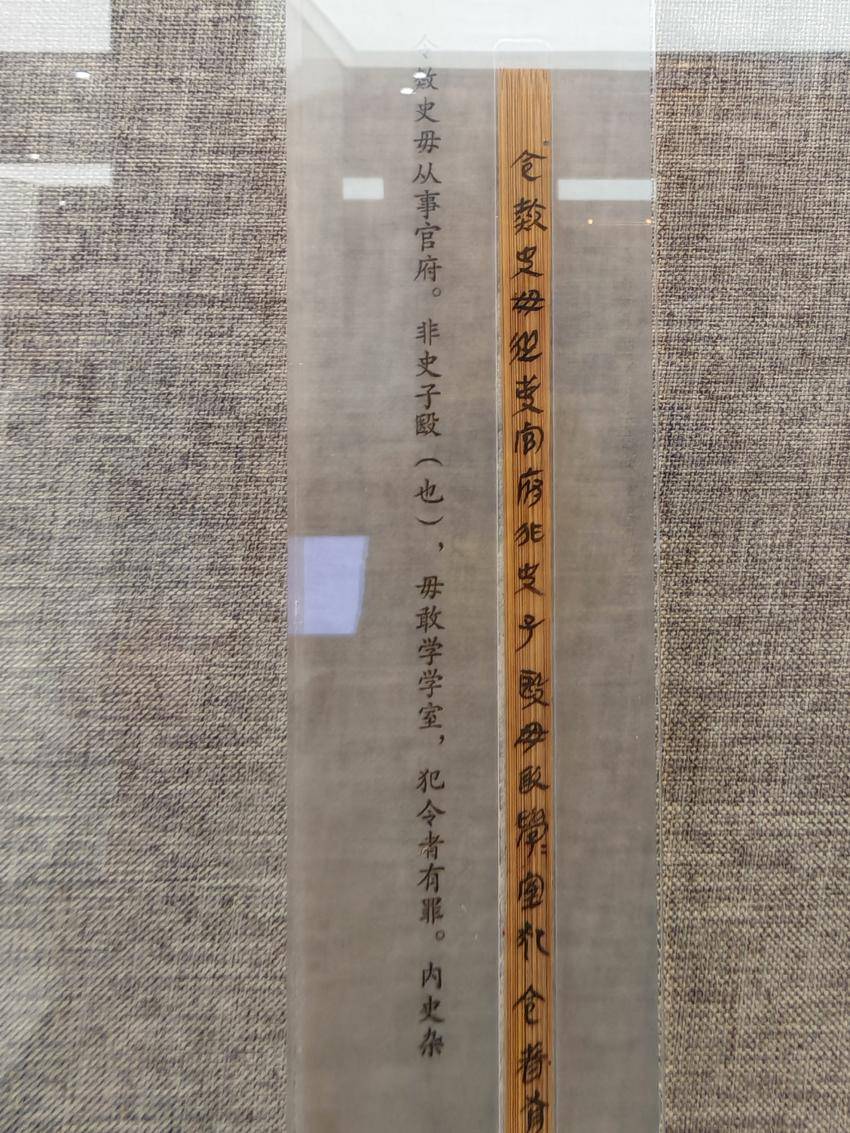 令史毋從事官府非史子殹毋敢學=室犯令者有
令史毋从事官府。非史子殹（也），毋敢学学室，犯令者有罪。内史杂